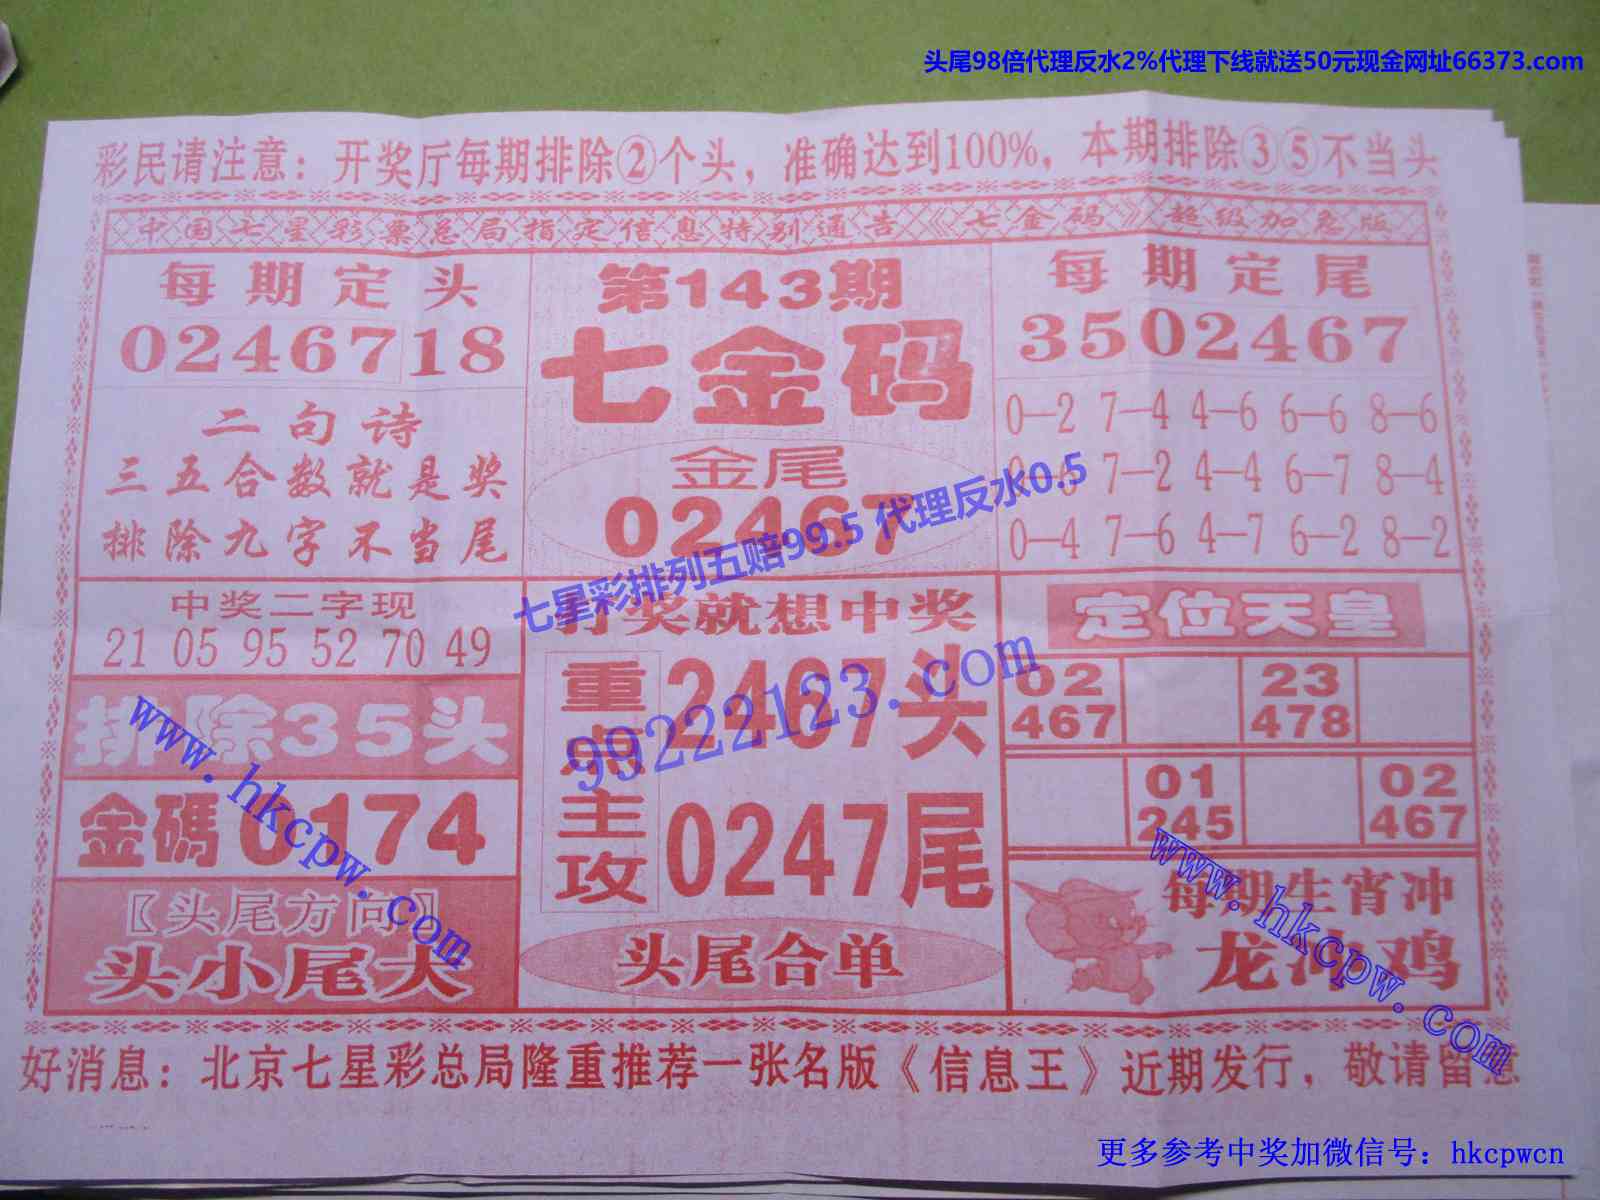 头尾98倍代理反水2%代理下线就送50元现金网址66373.com
彩民请注意：开奖厅每期排除②个头，准确达到100%，本期排除③⑤不当头
中国七星彩票总局指定信息特别通告《七金码》超级加急版
每期定头
0246718
二句诗
三五合数就是奖
排除九字不当尾
第143期
七金码
金尾
02467
每期定尾
3502467
0—2 7—4 4—6 6—6 8—6
7—2 4—4 6—7 8—4
0—4 7—6 4—7 6—2 8—2
七星彩排列五赔99.5 代理反水0.5
中奖二字现
21 05 95 52 70 49
排除35头
金碼 0174
〖头尾方向〗
头小尾大
打奖就想中奖
重点主攻
2467头
0247尾
头尾合单
99222123.com
定位天皇
02 467
23 478
01 245
02 467
每期生肖冲
龙冲鸡
www.hkcpw.com
www.hkcpw.com
好消息：北京七星彩总局隆重推荐一张名版《信息王》近期发行，敬请留意
更多参考中奖加微信号：hkcpwcn